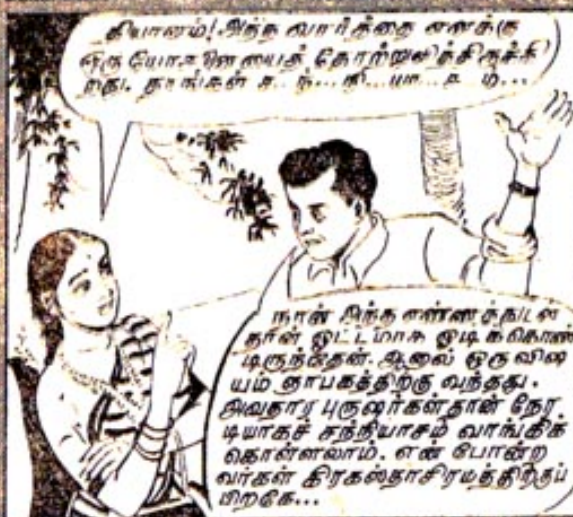 தியாகம்! அந்த வார்த்தை எனக்கு
ஒரு யோசனையைத் தோற்றுவித்திருக்கி
றது. தாங்கள் ச.. ந்... நி... யா... ச... ம்...
நான் அந்த எண்ணத்துடன்
தான் ஓட்டமாக ஓடிக்கொண்
டிருந்தேன். ஆனால் ஒரு விஷ
யம் ஞாபகத்திற்கு வந்தது.
அவதார புருஷர்கள்தான் நேர
டியாகச் சந்நியாசம் வாங்கிக்
கொள்ளலாம். என் போன்ற
வர்கள் கிரகஸ்தாசிரமத்திற்குப்
பிறகே...